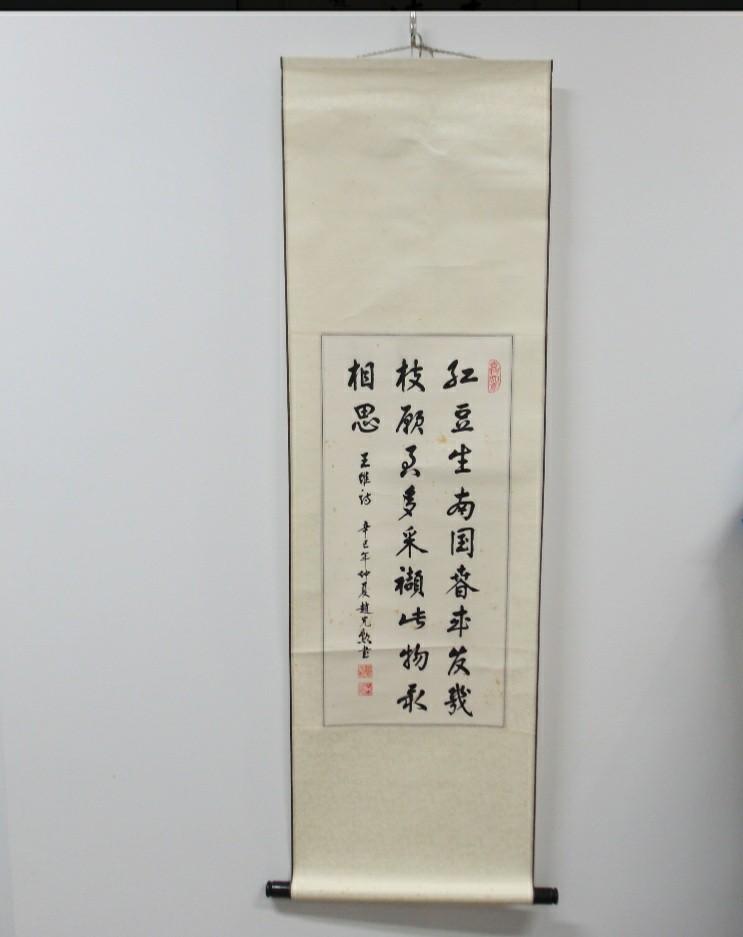 红豆生南国春来发幾
枝愿君多采襭此物最
相思
王维诗 辛巳年仲夏趙书